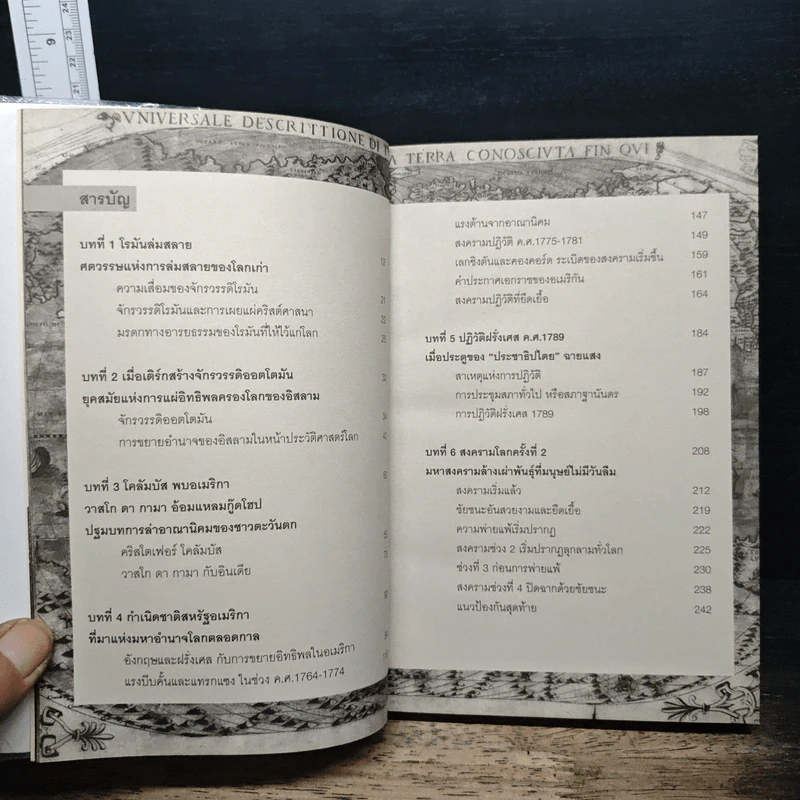 VNIVERSALE DESCRITTIONE DI T
A TERRA CONOSCIVTA FIN QVI
สารบัญ
บทที่ 1 โรมันล่มสลาย
ศตวรรษแห่งการล่มสลายของโลกเก่า 12
ความเสื่อมของจักรวรรดิโรมัน 21
จักรวรรดิโรมันและการเผยแผ่คริสต์ศาสนา 22
มรดกทางอารยธรรมของโรมันที่ให้ไว้แก่โลก
บทที่ 2 เมื่อเติร์กสร้างจักรวรรดิออตโตมัน
ยุคสมัยแห่งการแผ่อิทธิพลครองโลกของอิสลาม
จักรวรรดิออตโตมัน
การขยายอำนาจของอิสลามในหน้าประวัติศาสตร์โลก
บทที่ 3 โคลัมบัส พบอเมริกา
วาสโก ดา กามา อ้อมแหลมกู๊ดโฮป
ปฐมบทการล่าอาณานิคมของชาวตะวันตก
คริสโตเฟอร์ โคลัมบัส
วาสโก ดา กามา กับอินเดีย
บทที่ 4 กำเนิดชาติสหรัฐอเมริกา
ที่มาแห่งมหาอำนาจโลกตลอดกาล
อังกฤษและฝรั่งเศส กับการขยายอิทธิพลในอเมริกา
แรงบีบคั้นและแทรกแซง ในช่วง ค.ศ.1764-1774
แรงต้านจากอาณานิคม 147
สงครามปฏิวัติ ค.ศ.1775-1781 149
เลกซิงตันและคองคอร์ด ระเบิดของสงครามเริ่มขึ้น 159
คำประกาศเอกราชของอเมริกัน 161
สงครามปฏิวัติที่ยืดเยื้อ 164
บทที่ 5 ปฏิวัติฝรั่งเศส ค.ศ.1789 184
เมื่อประตูของ "ประชาธิปไตย" ฉายแสง
สาเหตุแห่งการปฏิวัติ 187
การประชุมสภาทั่วไป หรือสภาฐานันดร 192
การปฏิวัติฝรั่งเศส 1789 198
บทที่ 6 สงครามโลกครั้งที่ 2 208
มหาสงครามล้างเผ่าพันธุ์ที่มนุษย์ไม่มีวันลืม
สงครามเริ่มแล้ว 212
ชัยชนะอันสวยงามและยืดเยื้อ 219
ความพ่ายแพ้เริ่มปรากฏ 222
สงครามช่วง 2 เริ่มปรากฏลุกลามทั่วโลก 225
ช่วงที่ 3 ก่อนการพ่ายแพ้ 230
สงครามช่วงที่ 4 ปิดฉากด้วยชัยชนะ 238
แนวป้องกันสุดท้าย 242
24
23
22
21
9